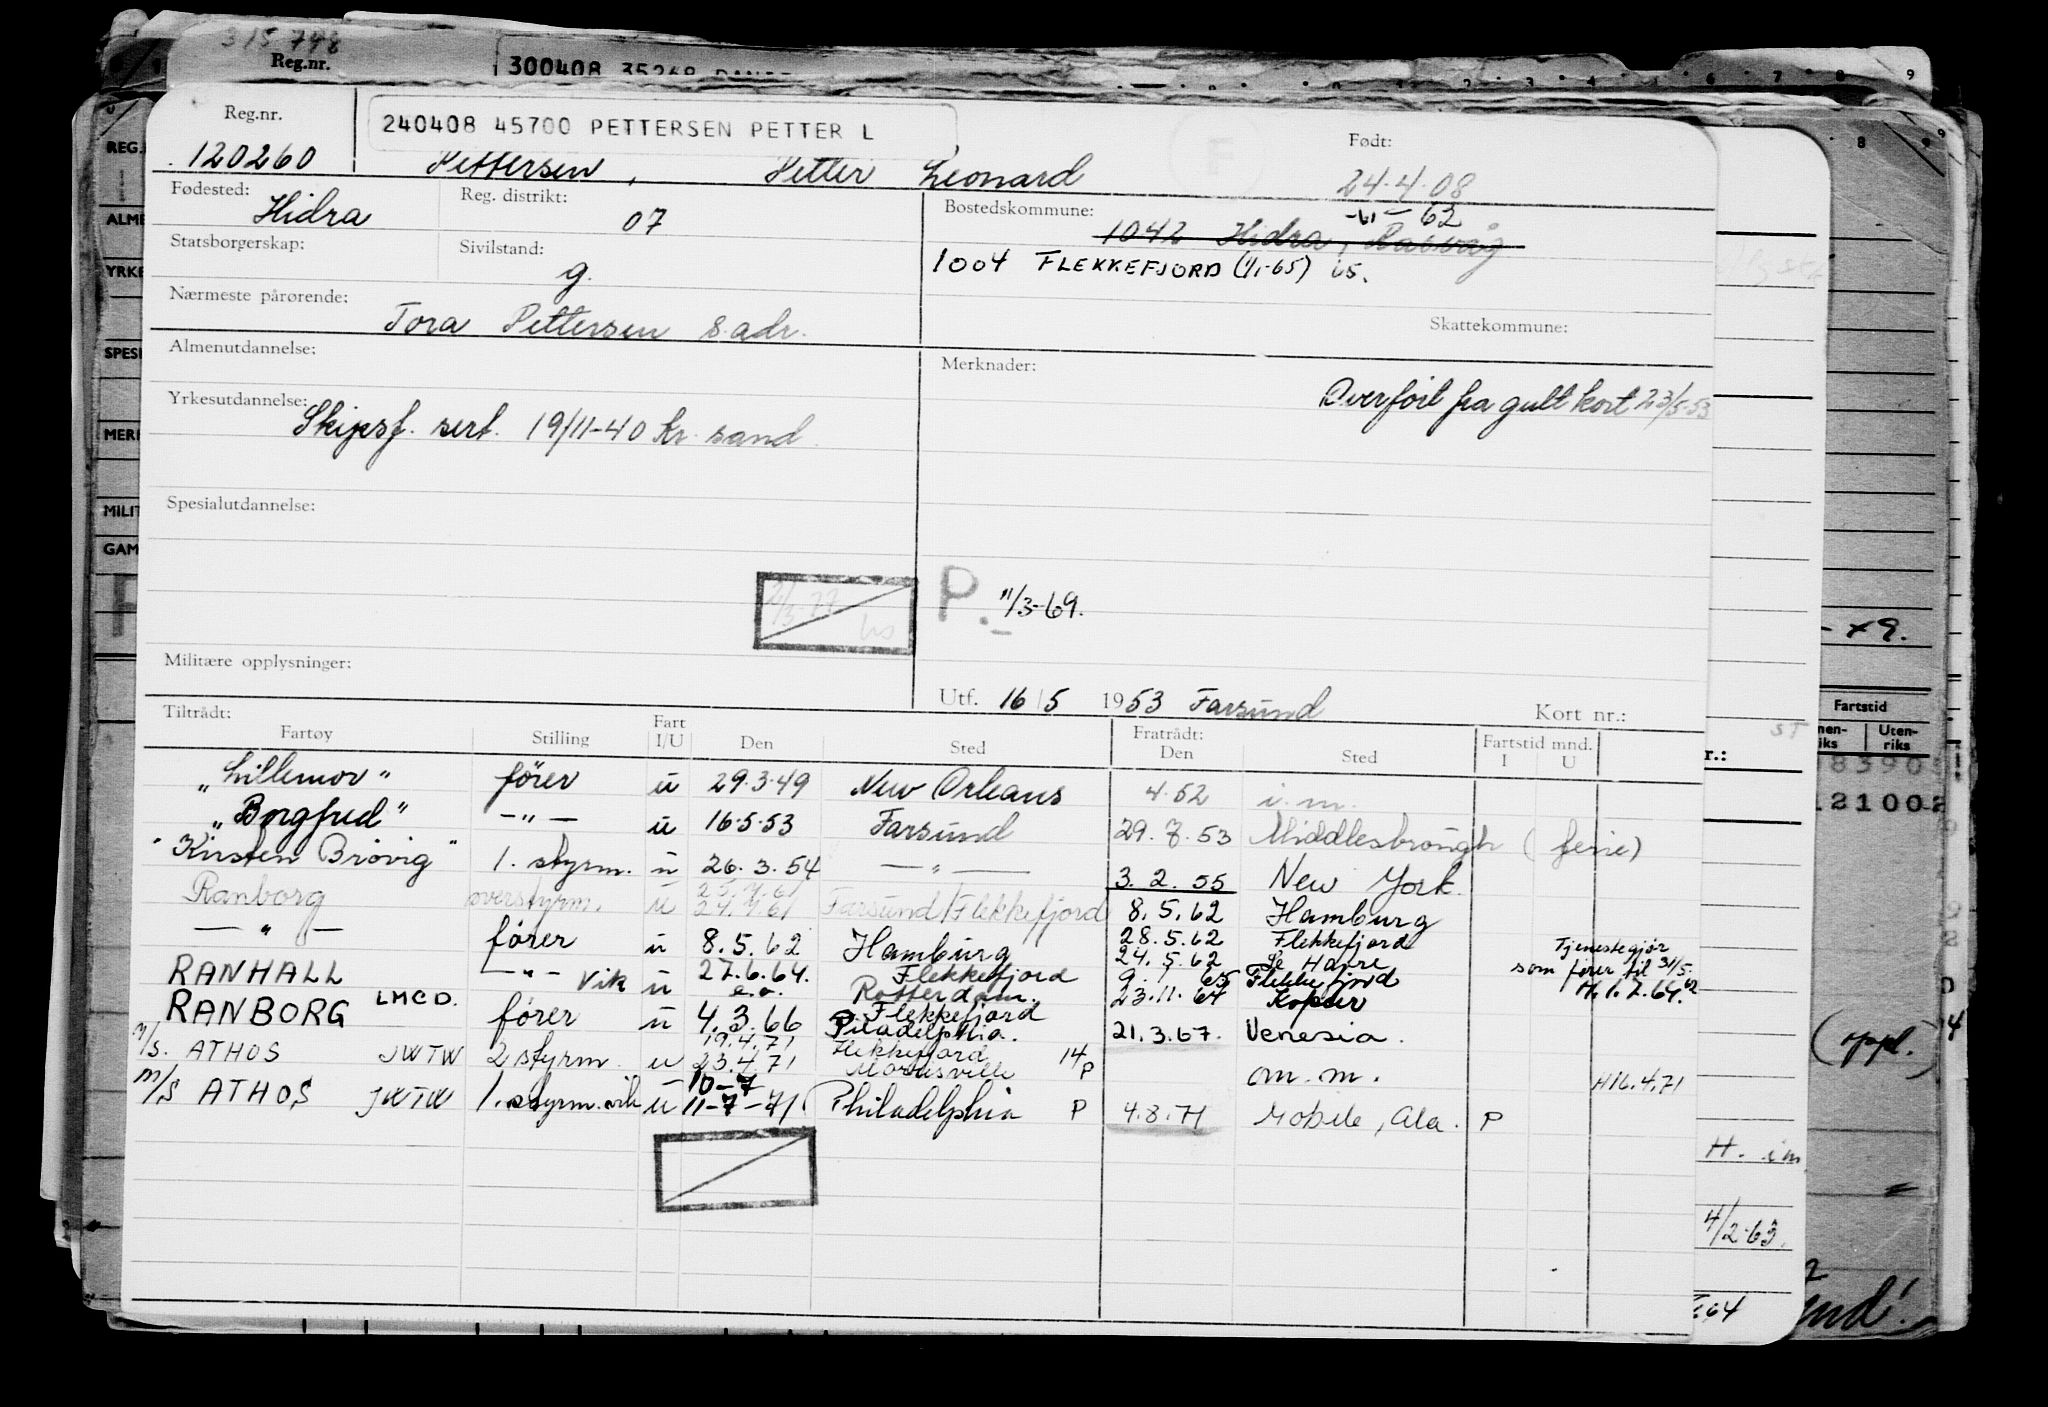 315798
Reg.nr.
300408 35269
Reg.nr.
240408 45700 PETTERSEN PETTER L
Født:
120260 Pettersen, Petter Leonard 24.4.08
Fødested: Hidra
Reg. distrikt: 07
Bostedskommune: -61- 62
1042 Hidra, Rasvåg
Statsborgerskap:
Sivilstand: g.
1004 FLEKKEFJORD (1/1-65) 65.
Nærmeste pårørende: Tora Pettersen s. adr.
Skattekommune:
Almenutdannelse:
Merknader:
Overført fra gult kort 23/5-53
Yrkesutdannelse: Skipsf. sert. 19/11-40 Kr. sand
Spesialutdannelse:
P. 11/3-69.
Militære opplysninger:
Utf. 16/5 1953 Farsund
Kort nr.:
Tiltrådt:
Fartøy Stilling Fart I/U Den Sted Fratrådt: Den Sted Fartstid mnd. I U
"Lillemor" fører u 29.3.49 New Orleans 4.52 i.m.
"Borgfred" -"- u 16.5.53 Farsund 29.7.53 Middlesbrough (ferie)
"Kirsten Brøvig" 1. styrm. u 26.3.54 -"- 3.2.55 New York.
Ranborg overstyrm. u 25.7.61 24.7.61 Farsund/Flekkefjord 8.5.62 Hamburg
-"- fører u 8.5.62 Hamburg 28.5.62 Flekkefjord
24.5.62 Le Havre
Tjenestegjør som fører til 31/5-62
RANHALL -"- Vik u 27.6.64. Flekkefjord 9.1.65 Flekkefjord
e.o. Rotterdam. 23.11.64 Koper
H. 1.7.64.
RANBORG LMCD. fører u 4.3.66 Flekkefjord
Piladelphia. 21.3.67. Venesia.
M/S. ATHOS JWTW 2 styrm u 19.4.71 Flekkefjord
23.4.71 Marcusville 14 P om.m. H16.4.71
M/S ATHOS JWTW 1. styrm. vik u 10-7
11-7-71 Philadelphia P 4.8.71 Mobile, Ala. P
REG.
ALME
YRKE
SPESI
MERI
MILIT
GAM
Fartstid
Uten-
riks
(oppl.)
H. i m
4/2-63.